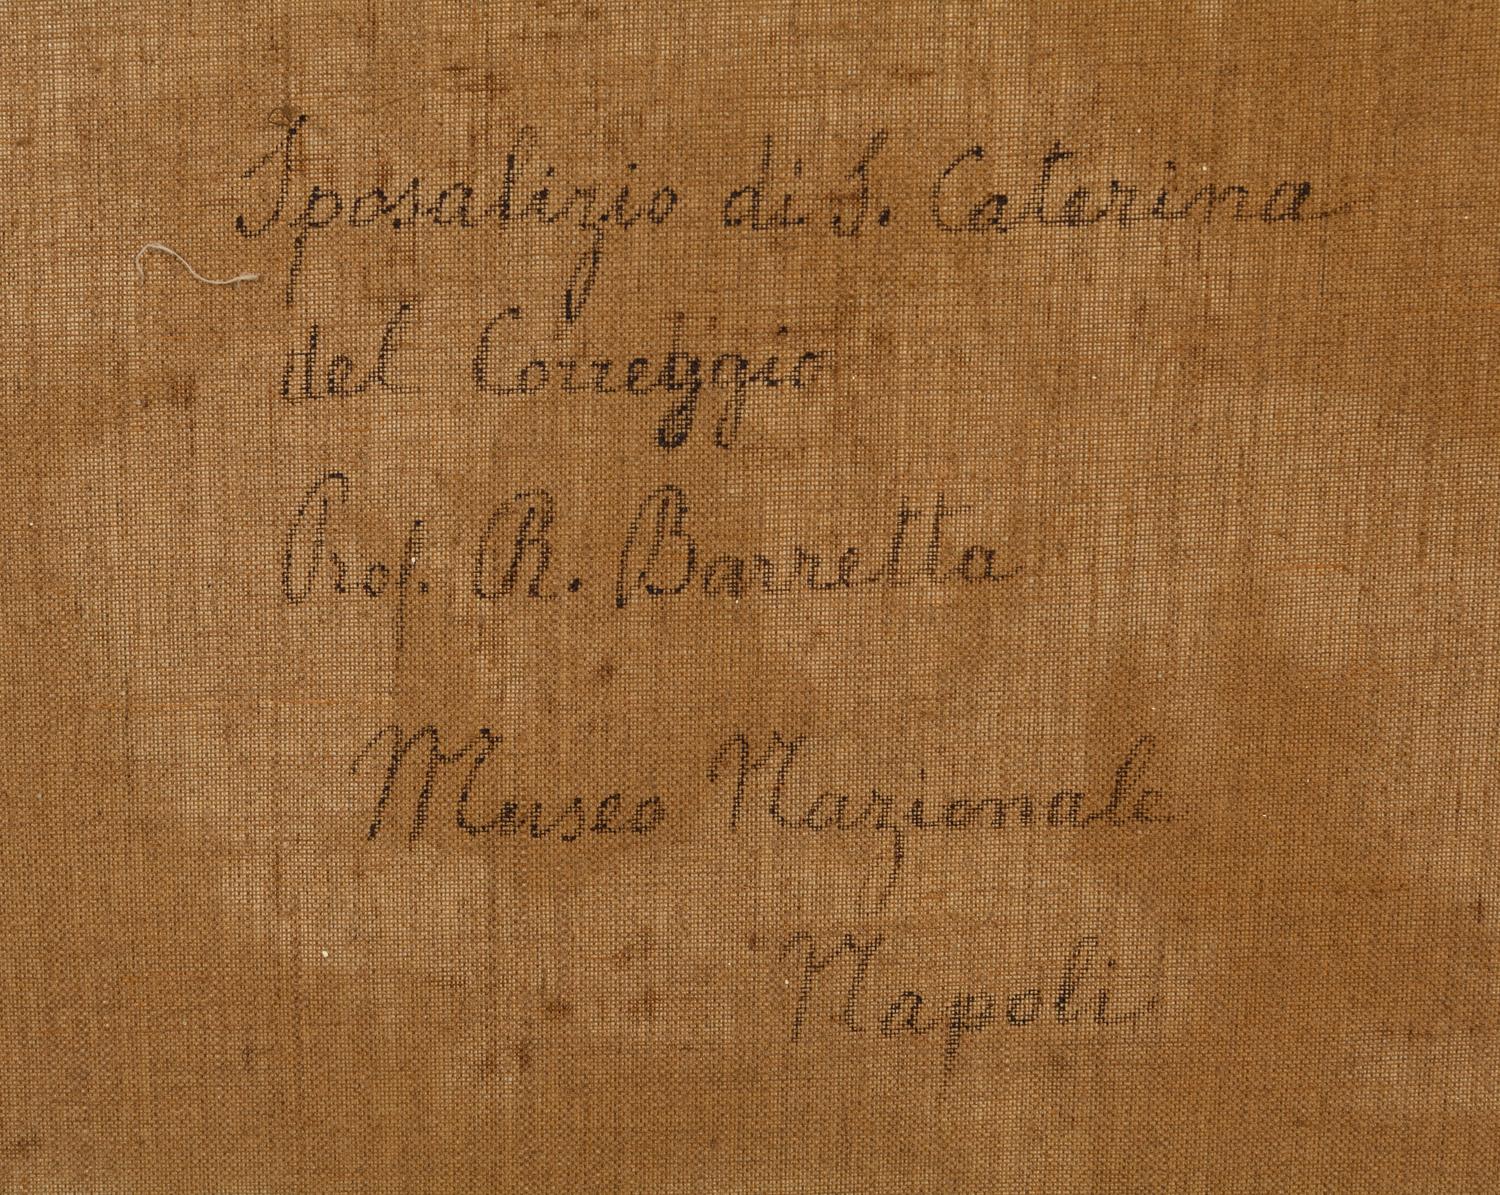 Sposalizio di S. Caterina
del Correggio
Prof. R. Barretta
Museo Nazionale
Napoli